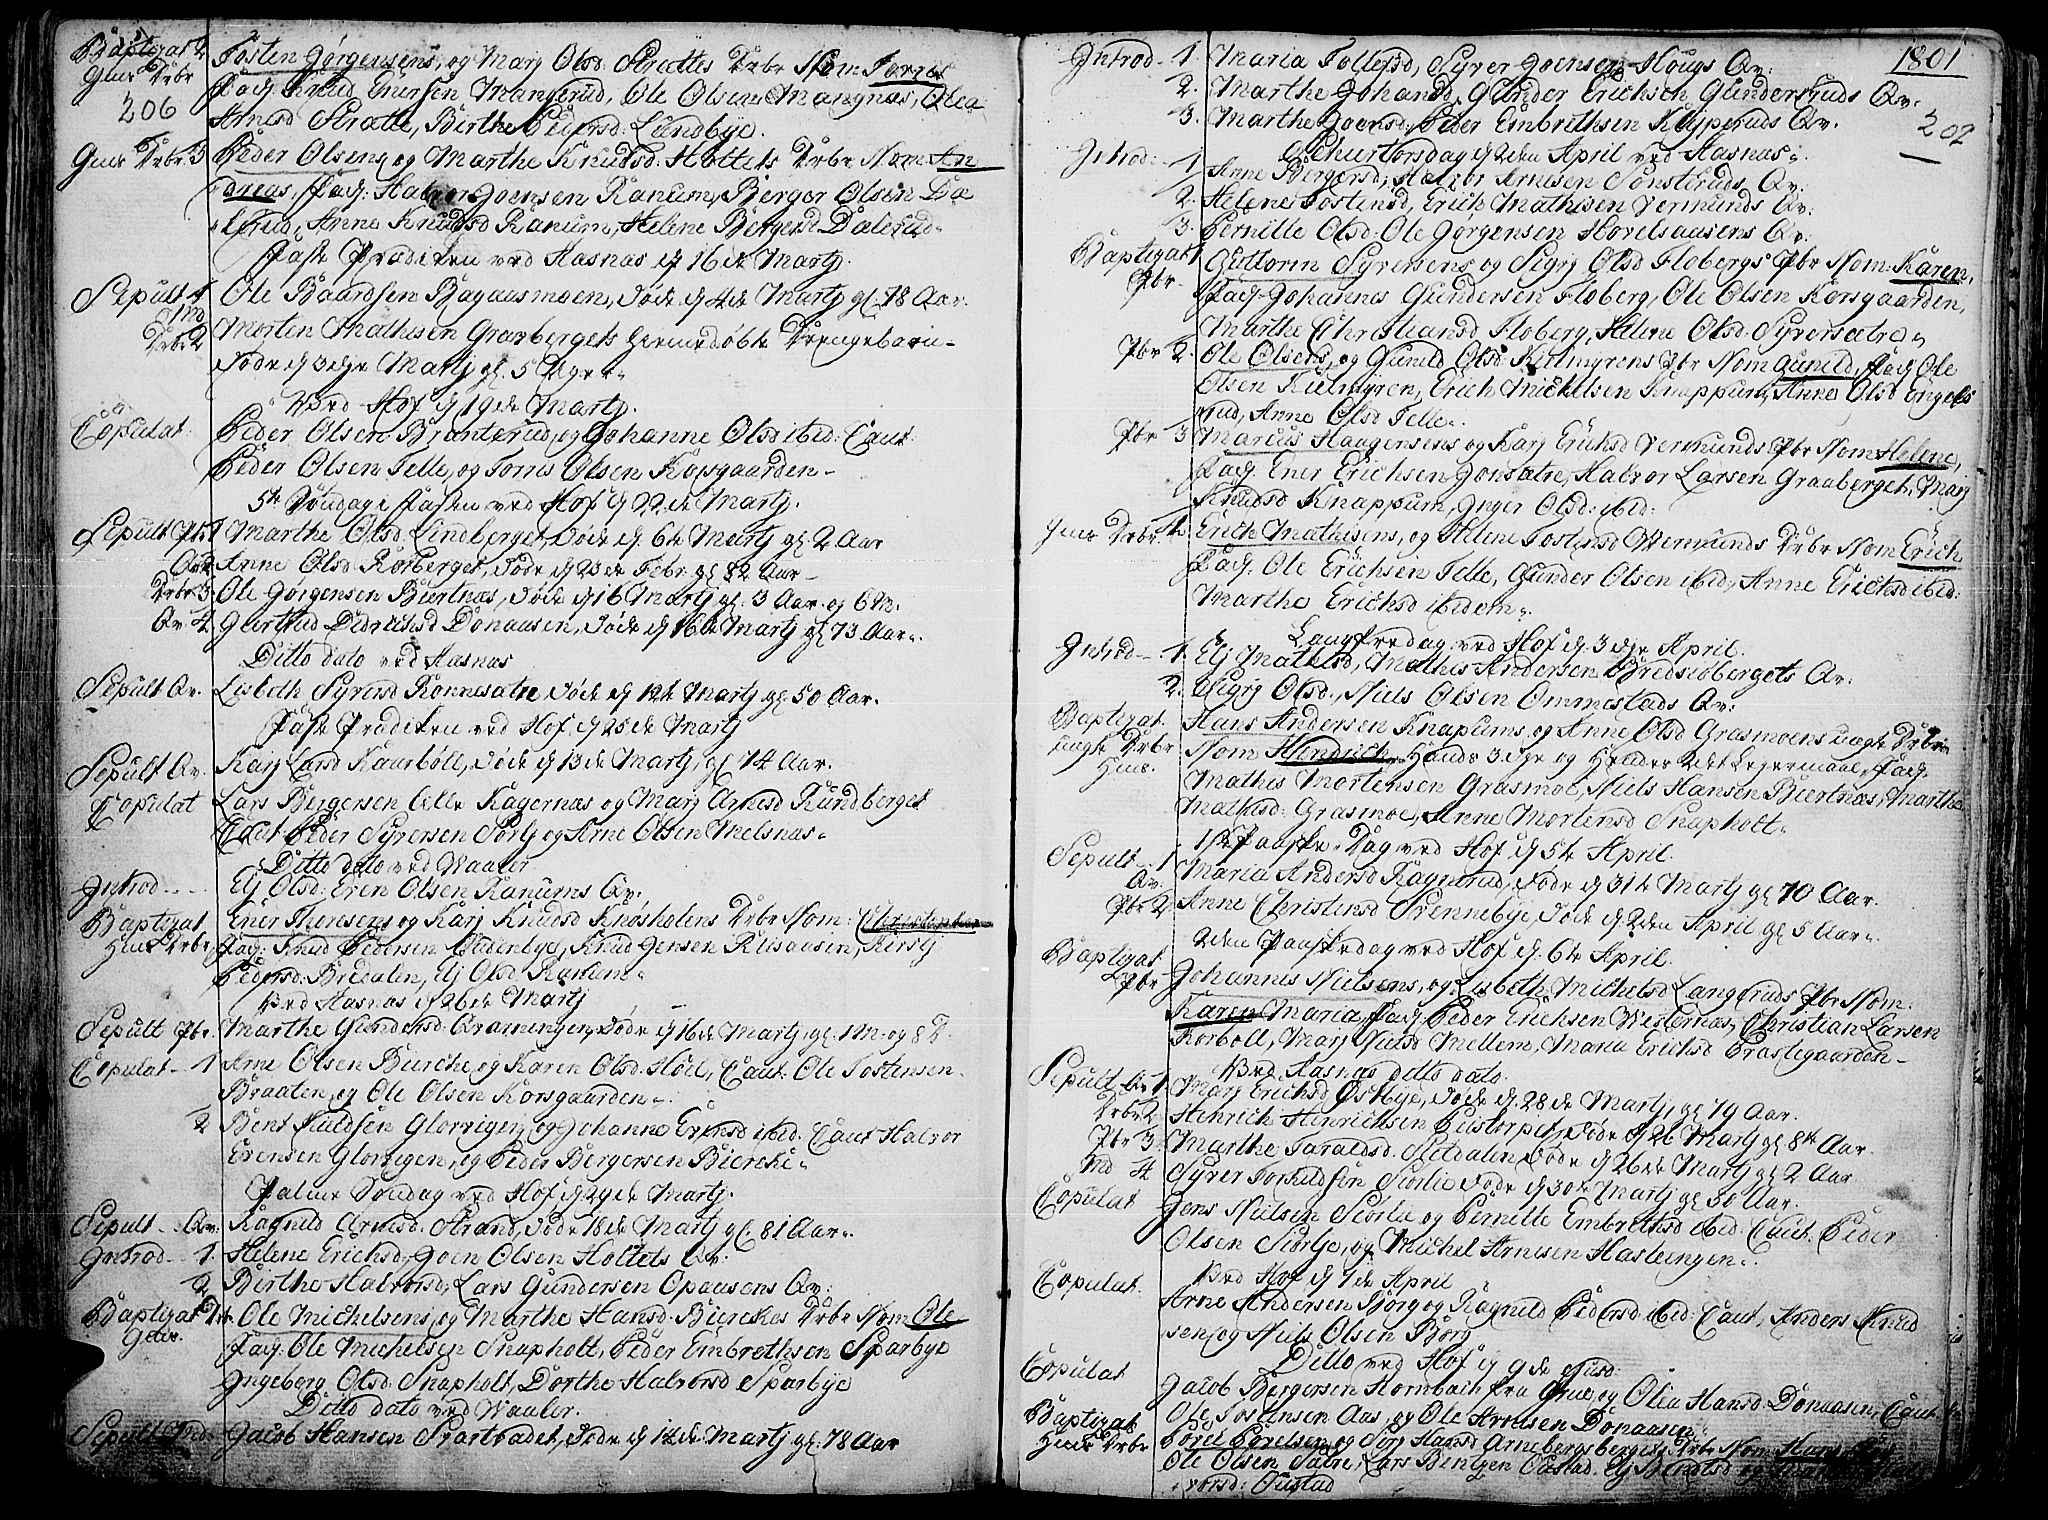 Baptizat 2 Tosten Jørgensens, og Marj Olsd. Strættes Drbr Nom: Torris
Giær Drbr Fadj: Knud Enersen Mangerud, Ole Olsen Mangnæs, Olea
206 Arnesd Strætte, Birthe Pedersd: Lundbye.
Giær Drbr. 3 Peder Olsens og Marthe Knudsd: Holtets Drbr Nom: An
dreas, Fadj: Halvor Joensen Ranum, Berger Olsen Da
lsrud, Anne Knudsd Ranum, Helene Bergersd. Dalsrud
Faste Prædiken ved Aasnæs d 16de Martj.
Sepult 1 Ole Baardsen Bagaasmoen, døde d 4de Martj gl. 78 Aar.
Md
Drbr 2 Morten Mathisen Graabergets hiemedøbte Drengebarn
døde d 3die Martj gl. 5 Uger
Ved Hof d 19de Martj.
Copulat: Peder Olsen Branterud, og Johanne Olsd ibid: Caut:
Peder Olsen Telle, og Torris Olsen Korsgaarden
5te Søndag i Fasten ved Hof d 22de Martj.
Sepult Pbr 1 Marthe Olsd Lindberget, døde d. 6te Martj gl 2 Aar
Qv 2 Anne Olsd Rørberget, døde d 23de Febr. gl 82 Aar
Drbr 3 Ole Jørgensen Biertnæs, døde d 16 Martj gl. 3 Aar og 6 M.
Qv 4 Giertrud Didrichsd Donaasen, døde d 16de Martj gl 73 Aar
Ditto dato ved Aasnæs
Sepult Qv. Lisbeth Syversd Rønnesætre døde d 12te Martj gl 50 Aar.
Faste Prædiken ved Hof d 25de Martj
Sepult Qv. Karj Larsd Kaarbøll, døde d 13de Martj, gl 74 Aar.
Copulat Lars Bergersen Ragernæs og Marj Arnesd Rundberget
Caut Peder Syversen Sorlj og Arne Olsen Melsnæs
Ditto dato ved Waaler
Introd Elj Olsd: Eren Olsen Ranums Qv:
Baptizat Ener Theresens og Karj Knudsd Knøsholens Drbr Nom: Christopher
Hiem Drbr Fadj: Knud Pedersen Oldenbye, Knud Jensen Risaasen, Kirstj
Pedersd: Bredalen, Elj Olsd Ranum
Ved Aasnæs d 26de Martj
Sepult Pbr. Marthe Gundersd: Qvæningen, døde d 16de Martj gl. 1 M. og 8 D.
Copulat 1 Arne Olsen Biercke og Karen Olsd: Hoel, Caut: Ole Tostensen
Braaten, og Ole Olsen Korsgaarden
2 Bent Kieldsen Glorvigen, og Johanne Erensd ibid. Caut Halvor
Erensen Glorvigen, og Peder Bergersen Biercke
Palme Søndag ved Hof d 29de Martj.
Sepult Qv: Ragnild Arnesd: Strand, døde 18de Martj gl: 81 Aar
Introd 1. Helene Erichsd: Joen Olsen Holtets Qv:
2 Birthe Halvorsd, Lars Gundersen Opaasens Qv:
Baptizat Drbr. Ole Michelsens, og Marthe Hansd: Bierckes Drbr Nom Ole
Giær. Fadj. Ole Michelsen Snapholt, Peder Embrethsen Sparbye
Ingeborg Olsd: Snapholt, Dorthe Halvorsd Sparbye
Ditto dato ved Waaler.
Sepult Md Jacob Hansen Svartbadet, døde d 12de Martj gl: 78 Aar
1801
202
Introd 1. Maria Tollefsd, Syver Joensen Hougs Qv:
2. Marthe Johansd, Gunder Erichsen Gundersruds Qv.
3. Marthe Joensd, Peder Embrethsen Kupperuds Qv.
Skiertorsdag d 2den April ved Aasnæs
Introd: 1 Anne Bergersd, Halvor Arnesen Sønsteruds Qv:
2. Helene Tostensd, Erich Mathisen Vermunds Qv:
3. Pernille Olsd: Ole Jørgensen Hovelsaasens Qv:
Baptizat 1 Guttorm Syversens og Sigrj Olsd Flobergs Pbr Nom: Karen,
Pbr Fadj: Johannes Gundersen Floberg, Ole Olsen Korsgaarden,
Marthe Christiansd Floberg, Helene Olsd: Syversætre
Pbr 2. Ole Olsens, og Gunild Olsd: Kielmyrens Pbr Nom Gunild, Fadj Ole
Olsen Kielmyren, Erich Michelsen Knappum, Anne Olsd Engels
rud, Anne Olsd Telle
Pbr 3 Marcus Haagensens og Karj Erichsd Vermunds Pbr Nom Helene,
Fadj Ener Erichsen Jonsætre, Halvor Larsen Graaberget, Marj
Knudsd Knappum, Inger Olsd: ibid:
Hiem Drbr. 4 Erich Mathisens, og Helene Tostensd Vermunds Drbr Nom Erich
Fadj: Ole Erichsen Telle, Gunder Olsen ibid, Anne Erichsd ibid:
Marthe Erichsd ibidem
Langfredag ved Hof d. 3die April.
Introd 1. Elj Mathisd, Mathis Andersen Bredsiebergets Qv:
2. Sigrj Olsd., Niels Olsen Ommestads Qv:
Baptizat Hans Andersen Knapums og Anne Olsd Græsmoens uægte Drbr
uægte Drbr Nom Hendrich. Hands 3die og Hendes 2det Legermaal, Fadj.
Hiem. Mathis Mortensen Græsmoe, Niels Hansen Biertnæs, Marthe
Mathisd: Græsmoe, Anne Mortensd Snapholt
1ste Paaske Dag ved Hof d 5te April.
Sepult 1 Maria Andersd Ragnerud, døde d 31te Martj gl 70 Aar.
Qv.
Pbr 2 Anne Christensd Svennebye, døde d 2den April gl 5 Aar
2den Paaskedag ved Hof d. 6te April.
Baptizat Johannes Nielsens, og Lisbeth Michelsd Langeruds Pbr Nom:
Pbr Karen Maria, Fadj: Peder Erichsen Westernæs, Christian Larsen
Korboll, Marj Nielsd Mellem, Maria Erichsd Præstegaarden
Ved Aasnæs ditto dato.
Sepult Qv 1. Marj Erichsd Østbye, døde d. 28de Martj, gl 79 Aar.
Drbr 2 Henrich Henrichsen Peistorpet, døde d 26 Martj gl 8te Aar
Pbr 3 Marthe Taraldsd. Sletdalen døde d 26de Martj gl 2 Aar
Md 4 Syver Torkildsen Siorlie døde d 30te Martj gl 30 Aar
Copulat Jens Nielsen Siorlie og Pernille Embrethsd ibid: Caut. Peder
Olsen Siorlje, og Michel Arnesen Haslingen
Ved Hof d 7de April
Copulat. Arne Andersen Bjørg og Ragnild Pedersd ibid: Caut, Anders Knud
sen og Niels Olsen Borg
Ditto ved Hof d 9de ejusd:
Copulat Jacob Bergersen Hornbach fra Grue, og Olea Hansd: Donaasen, Caut
Ole Tostensen Aas, og Ole Arnesen Donaasen
Baptizat Povel Povelsen og Sirj Hansd Arnebergsbergets Drbr Nom Hans
Hiem Drbr Ole Olsen Sætre, Lars Bentzen Oustad. Elj Bendtsd og
vorsd: Oustad